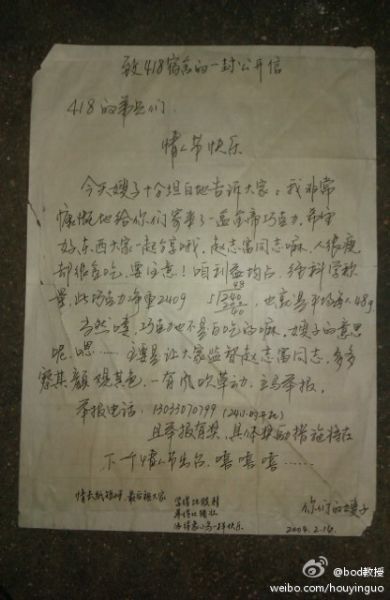 致418宿舍的一封公开信
418的弟兄们:
情人节快乐
今天嫂子十分坦白地告诉大家:我非常
慷慨地给你们寄来了一盒金帝巧克力,希望
好东西大家一起分享哦,赵志富同志嘛,人很瘦
却很贪吃,要注意!咱利益均占,经科学称
量,此巧克力净重240g 5√240 48 240 0,也就是平均每人48g
当然喽,巧克力也不是白吃的嘛,嫂子的意思
呢,嗯……主要是让大家监督赵志富同志,多多
察其颜观其色,一有风吹草动,立马举报,
举报电话:13033070799
且举报有奖,具体奖励措施将在
下一个情人节出台,嘻嘻嘻……
情长纸短呀,最后祝大家
学好
你们的嫂子
2004.2.14
@bod教授
weibo.com/houyinguo